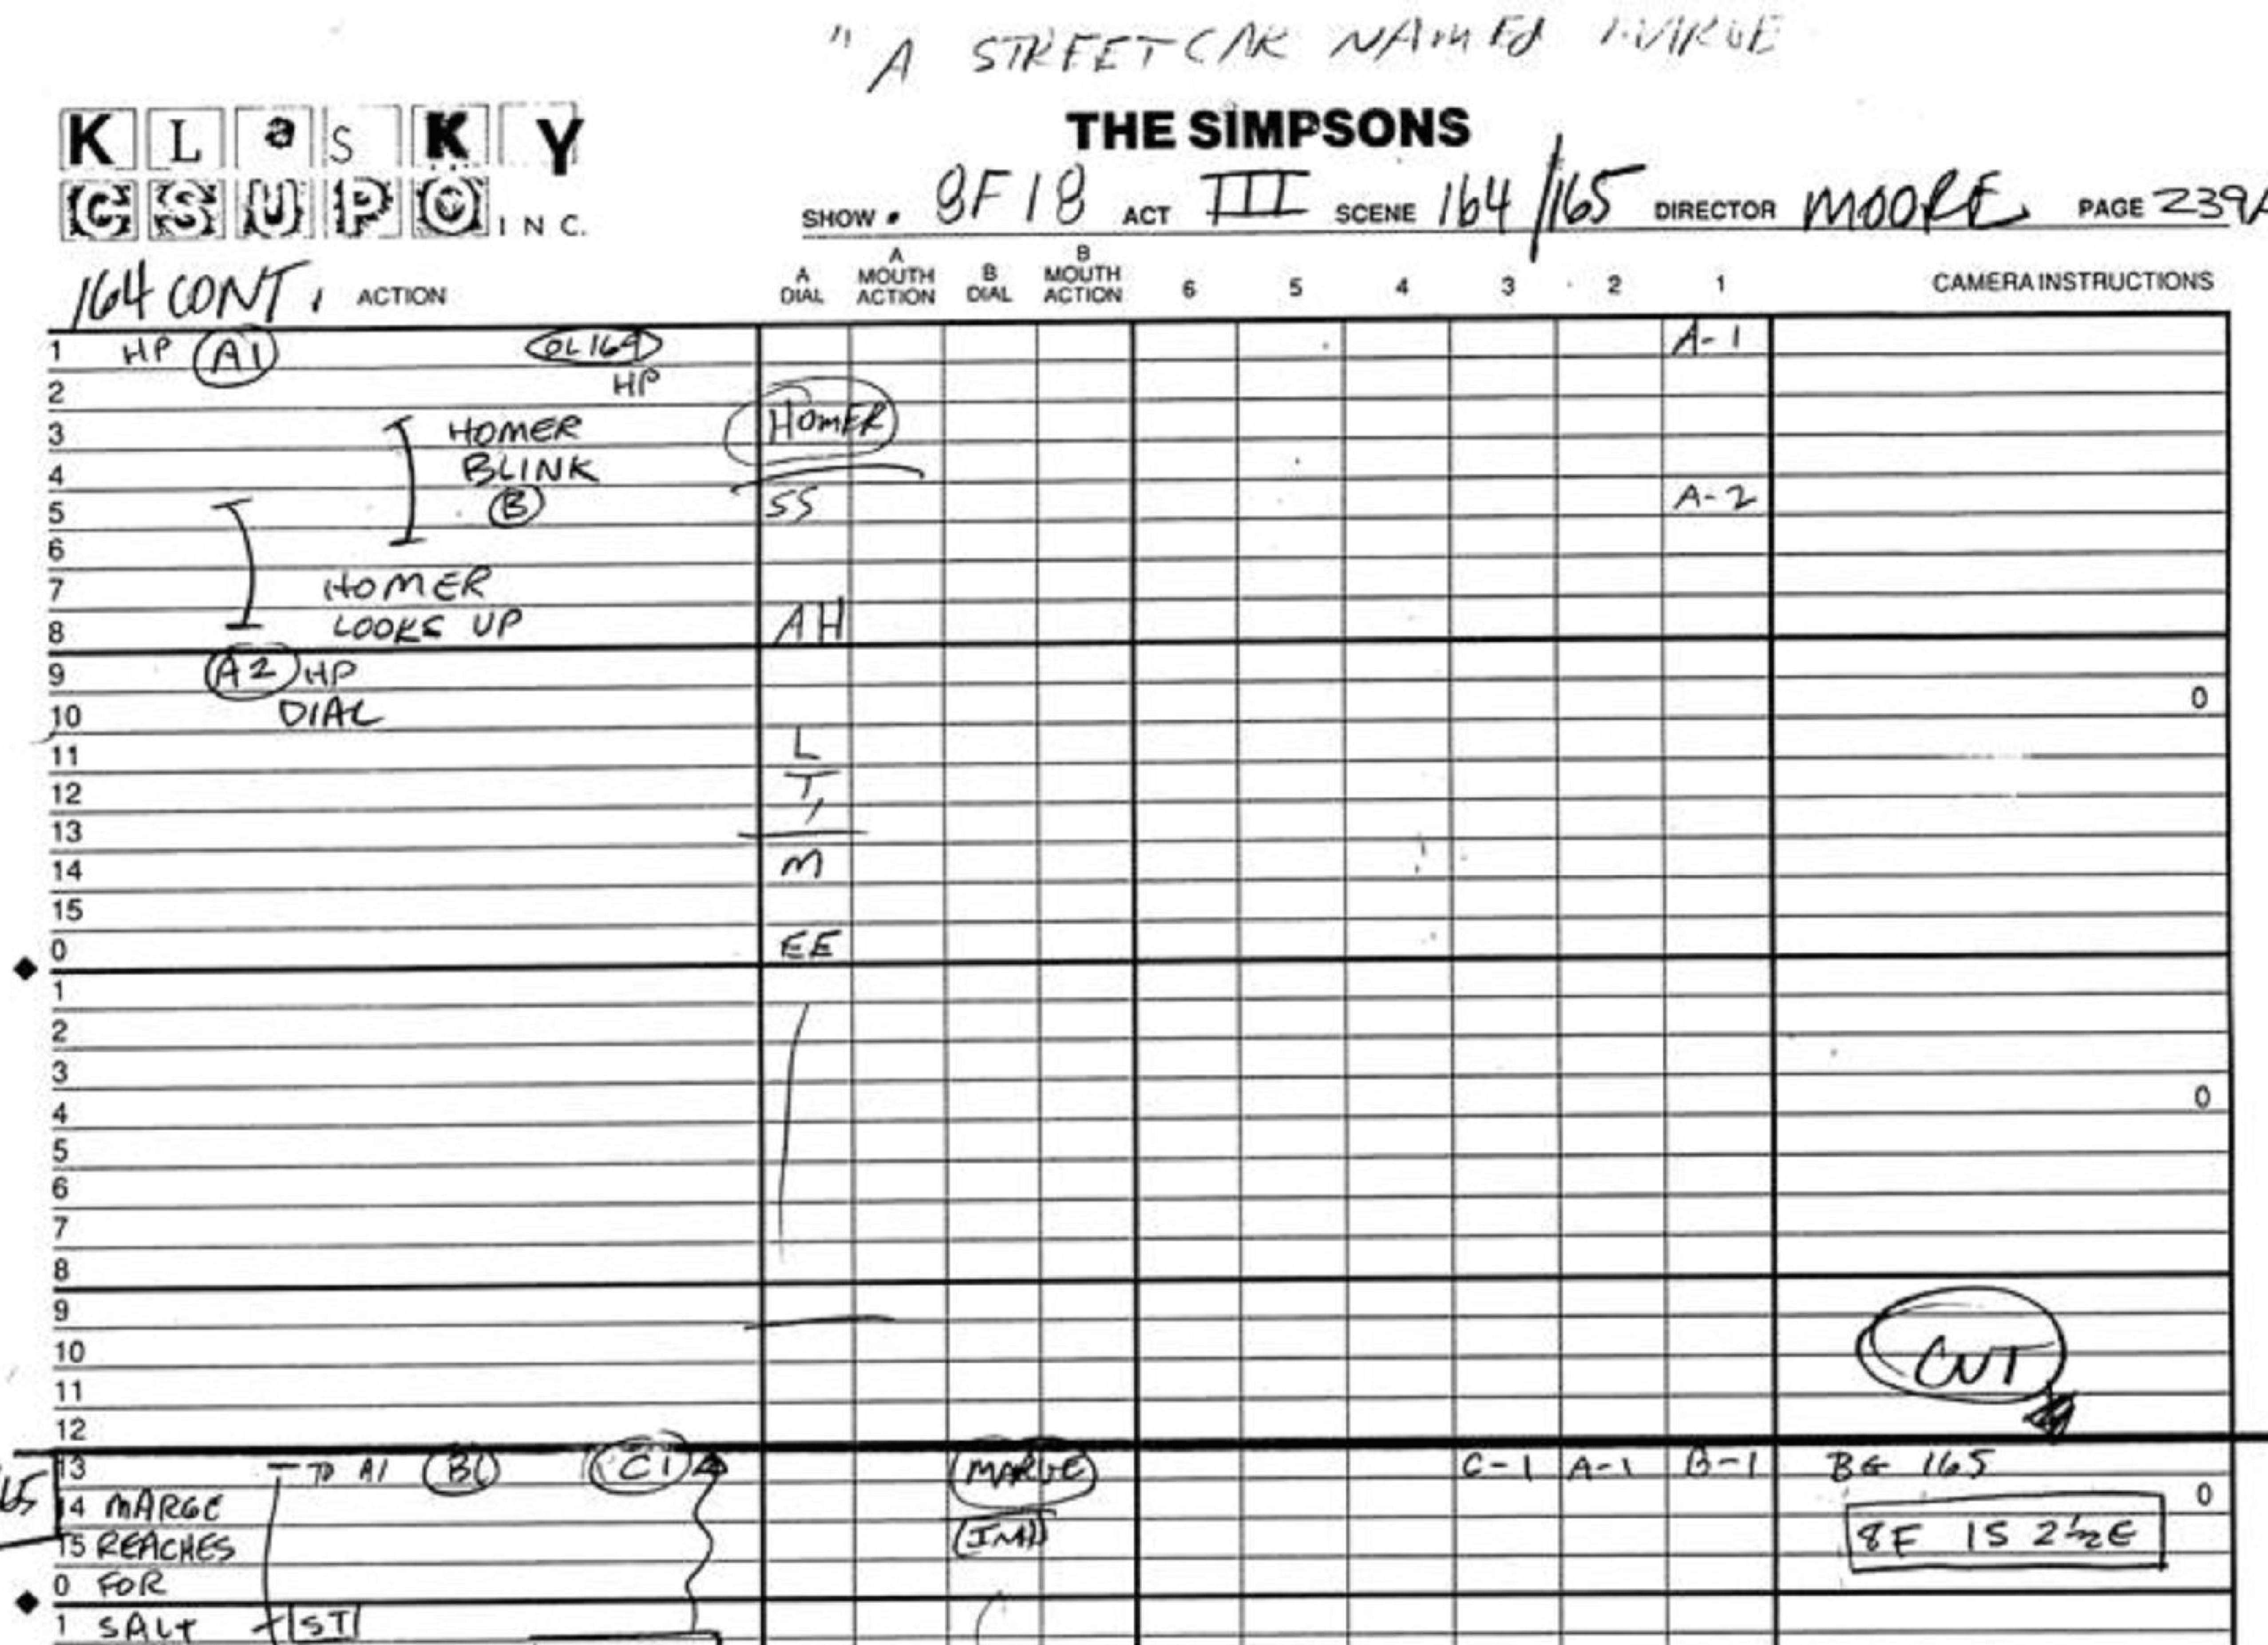 "A STREETCAR NAMED MARGE
KLasKY
CSUPO INC.
THE SIMPSONS
SHOW • 8F18 ACT III SCENE 164/165 DIRECTOR MOORE PAGE 239A
164 CONT. ACTION A DIAL A MOUTH ACTION B DIAL B MOUTH ACTION 6 5 4 3 2 1 CAMERA INSTRUCTIONS
1 HP A1 OL 164 A-1
2 HP
3 HOMER HOMER
4 BLINK
5 B SS A-2
6
7 HOMER
8 LOOKS UP AH
9 A2 HP
10 DIAL 0
11 L
12 T,
13
14 M
15
0 EE
1
2
3
4 0
5
6
7
8
9
10 CUT
11
12
13 TO A1 B1 C1 MARGE C-1 A-1 B-1 BG 165
65 14 MARGE 0
15 REACHES (INH) 8F IS 2½E
0 FOR
1 SALT ST